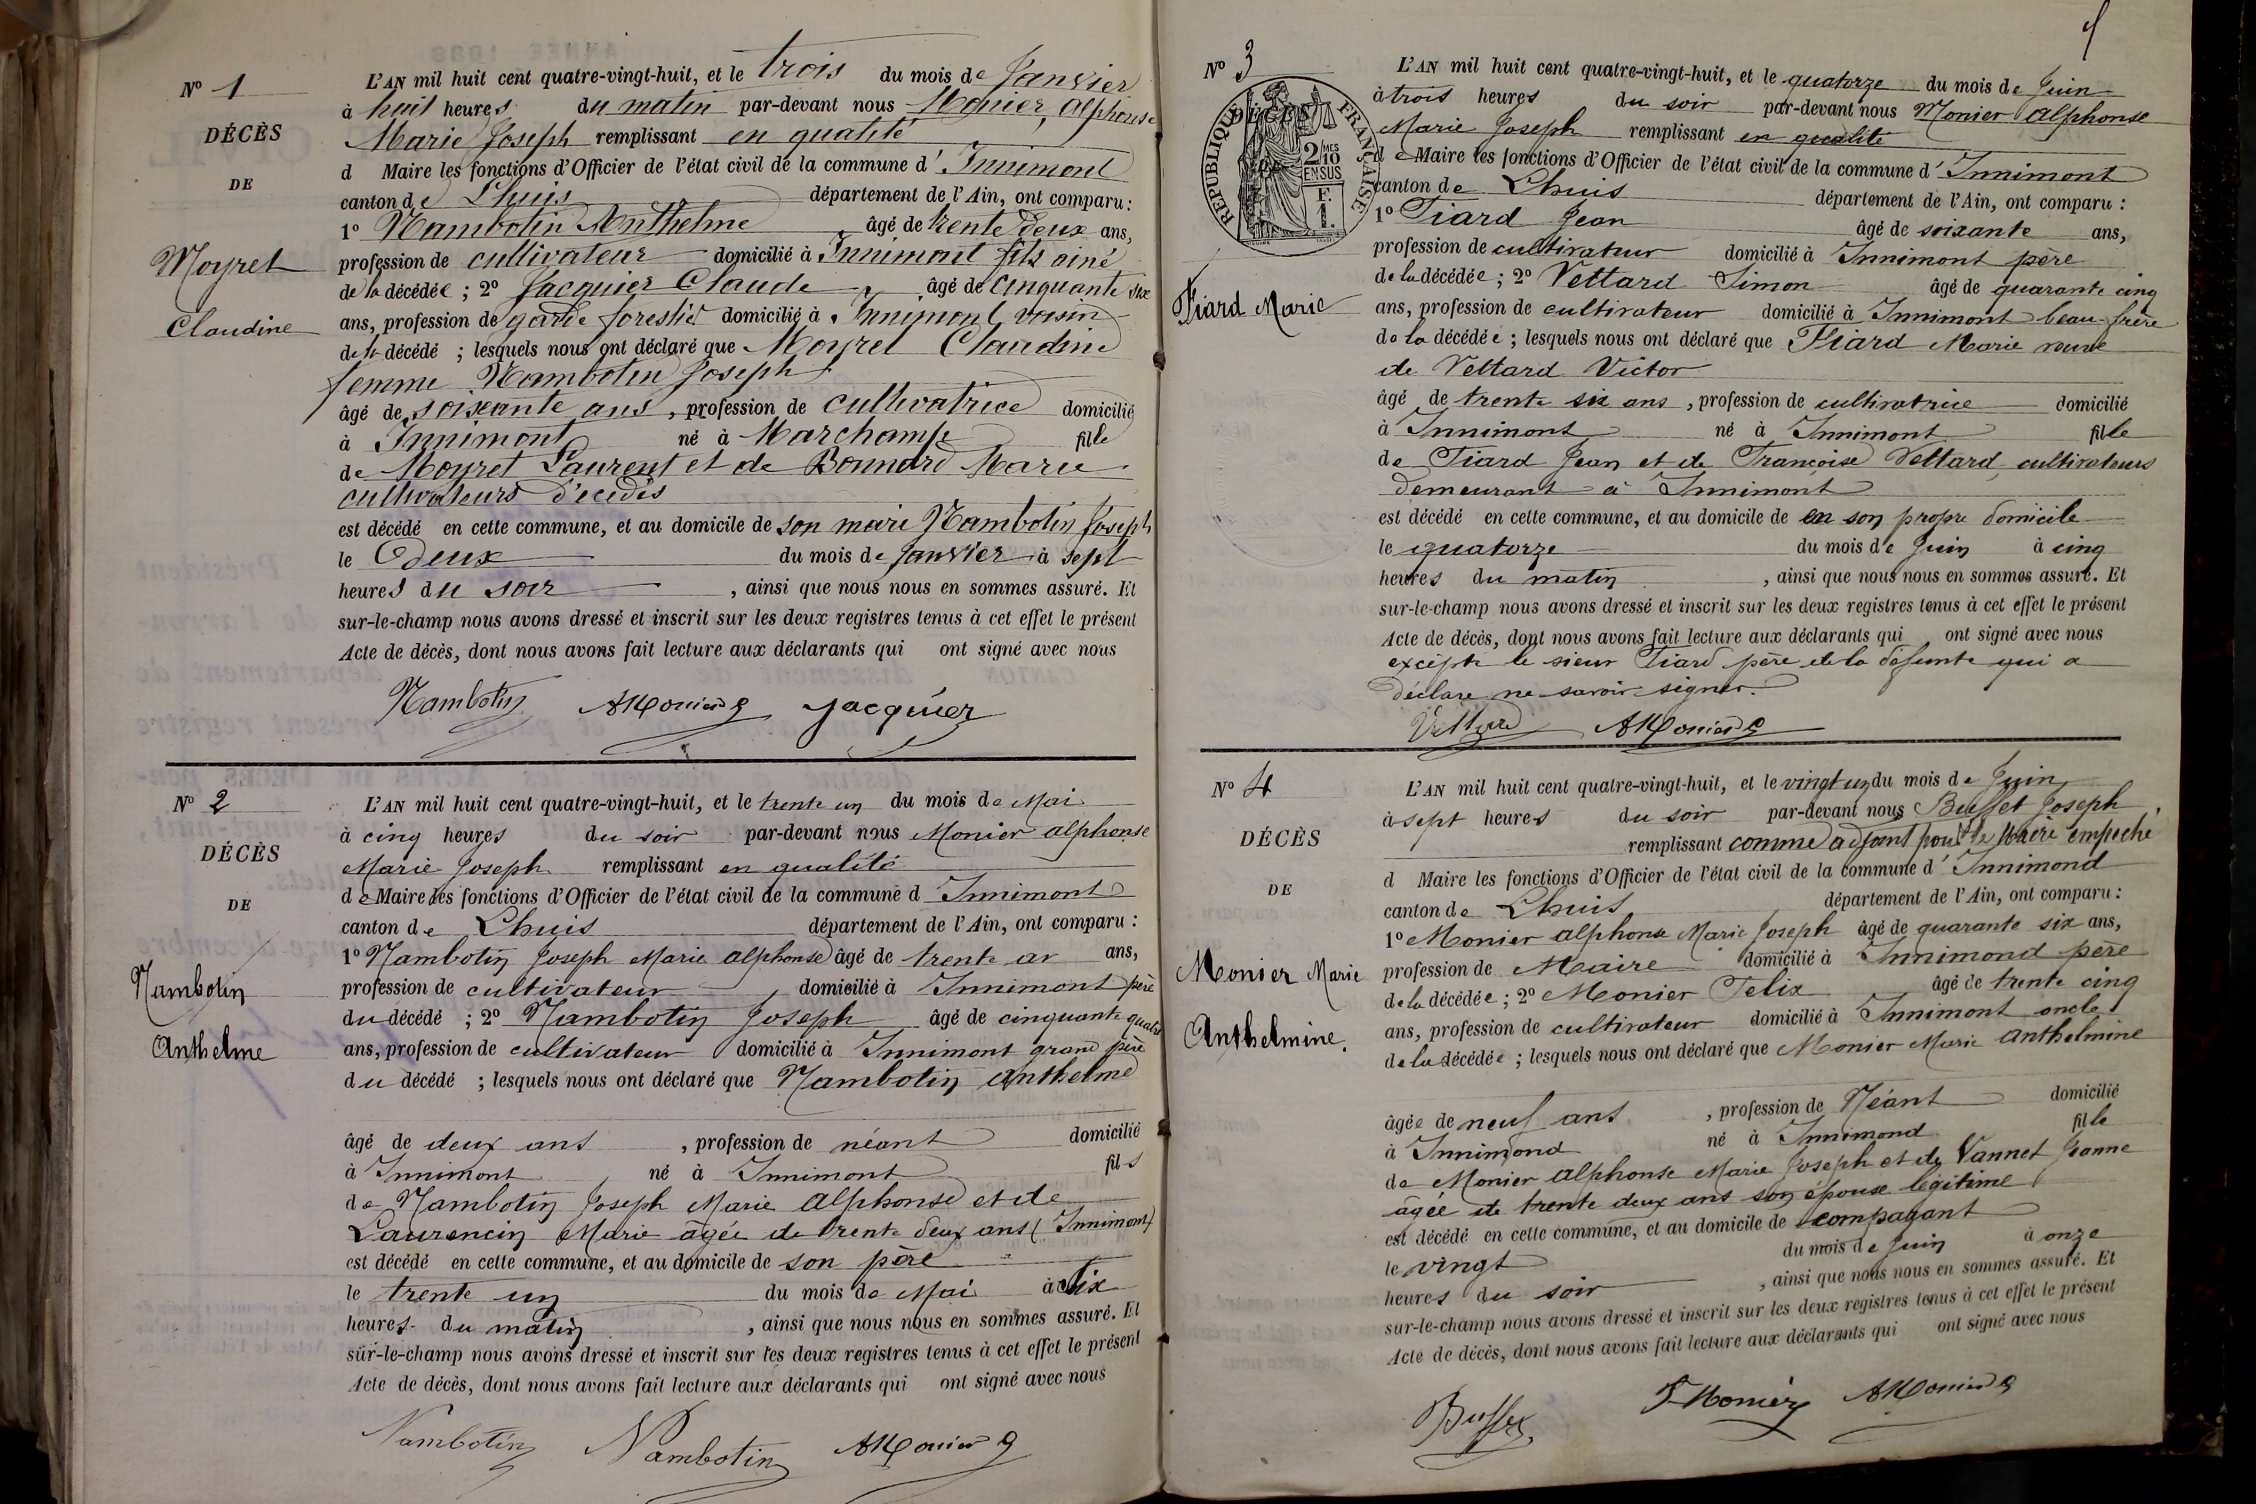 N° 1
DÉCÈS
DE
Moyret
Claudine
L'AN mil huit cent quatre-vingt-huit, et le trois du mois de Janvier
à huit heures du matin par-devant nous Monier, Alphonse
Marie Joseph remplissant en qualité
d Maire les fonctions d'Officier de l'état civil de la commune d' Innimont
canton de Lhuis département de l'Ain, ont comparu :
1° Nambotin Anthelme âgé de trente deux ans,
profession de cultivateur domicilié à Innimont fils ainé
de la décédée ; 2° Jacquier Claude âgé de cinquante six
ans, profession de garde forestier domicilié à Innimont voisin
de la décédé ; lesquels nous ont déclaré que Moyret Claudine
femme Nambotin Joseph
âgé de soixante ans, profession de cultivatrice domicilié
à Innimont né à Marchamp fille
de Moyret Laurent et de Bonnard Marie
cultivateurs décédés
est décédé en cette commune, et au domicile de son mari Nambotin Joseph
le deux du mois de Janvier à sept
heures du soir, ainsi que nous nous en sommes assuré. Et
sur-le-champ nous avons dressé et inscrit sur les deux registres tenus à cet effet le présent
Acte de décès, dont nous avons fait lecture aux déclarants qui ont signé avec nous
Nambotin AMonier Jacquier
N° 2
DÉCÈS
DE
Nambotin
Anthelme
L'AN mil huit cent quatre-vingt-huit, et le trente un du mois de Mai
à cinq heures du soir par-devant nous Monier Alphonse
Marie Joseph remplissant en qualité
de Maire les fonctions d'Officier de l'état civil de la commune d Innimont
canton de Lhuis département de l'Ain, ont comparu :
1° Nambotin Joseph Marie Alphonse âgé de trente ans,
profession de cultivateur domicilié à Innimont père
du décédé ; 2° Nambotin Joseph âgé de cinquante quatre
ans, profession de cultivateur domicilié à Innimont grand père
du décédé ; lesquels nous ont déclaré que Nambotin Anthelme
âgé de deux ans, profession de néant domicilié
à Innimont né à Innimont fils
de Nambotin Joseph Marie Alphonse et de
Laurencin Marie âgée de trente deux ans (Innimont)
est décédé en cette commune, et au domicile de son père
le trente un du mois de Mai à six
heures du matin, ainsi que nous nous en sommes assuré. Et
sur-le-champ nous avons dressé et inscrit sur les deux registres tenus à cet effet le présent
Acte de décès, dont nous avons fait lecture aux déclarants qui ont signé avec nous
Nambotin Nambotin AMonier
N° 3
DÉCÈS
DE
RÉPUBLIQUE FRANÇAISE
2/10 MES
EN SUS
F. 1.
Tiard Marie
L'AN mil huit cent quatre-vingt-huit, et le quatorze du mois de Juin
à trois heures du soir par-devant nous Monier Alphonse
Marie Joseph remplissant en qualité
de Maire les fonctions d'Officier de l'état civil de la commune d' Innimont
canton de Lhuis département de l'Ain, ont comparu :
1° Tiard Jean âgé de soixante ans,
profession de cultivateur domicilié à Innimont père
de la décédée ; 2° Vettard Simon âgé de quarante cinq
ans, profession de cultivateur domicilié à Innimont beau-frère
de la décédée ; lesquels nous ont déclaré que Tiard Marie veuve
de Vettard Victor
âgé de trente six ans, profession de cultivatrice domicilié
à Innimont né à Innimont fille
de Tiard Jean et de Françoise Vettard cultivateurs
demeurant à Innimont
est décédé en cette commune, et au domicile de en son propre domicile
le quatorze du mois de Juin à cinq
heures du matin, ainsi que nous nous en sommes assuré. Et
sur-le-champ nous avons dressé et inscrit sur les deux registres tenus à cet effet le présent
Acte de décès, dont nous avons fait lecture aux déclarants qui ont signé avec nous
excépté le sieur Tiard père de la défunte qui a
déclaré ne savoir signer.
Vettard AMonier
N° 4
DÉCÈS
DE
Monier Marie
Anthelmine.
L'AN mil huit cent quatre-vingt-huit, et le vingt un du mois de Juin
à sept heures du soir par-devant nous Buffet Joseph,
remplissant comme adjoint pour le Maire empêché
d Maire les fonctions d'Officier de l'état civil de la commune d' Innimond
canton de Lhuis département de l'Ain, ont comparu :
1° Monier Alphonse Marie Joseph âgé de quarante six ans,
profession de Maire domicilié à Innimond père
de la décédée ; 2° Monier Felix âgé de trente cinq
ans, profession de cultivateur domicilié à Innimont oncle
de la décédée ; lesquels nous ont déclaré que Monier Marie Anthelmine
âgée de neuf ans, profession de Néant domicilié
à Innimond né à Innimond fille
de Monier Alphonse Marie Joseph et de Vannet Jeanne
âgée de trente deux ans son épouse légitime
est décédé en cette commune, et au domicile de compagant
le vingt du mois de Juin à onze
heures du soir, ainsi que nous nous en sommes assuré. Et
sur-le-champ nous avons dressé et inscrit sur les deux registres tenus à cet effet le présent
Acte de décès, dont nous avons fait lecture aux déclarants qui ont signé avec nous
Buffet F Monier AMonier